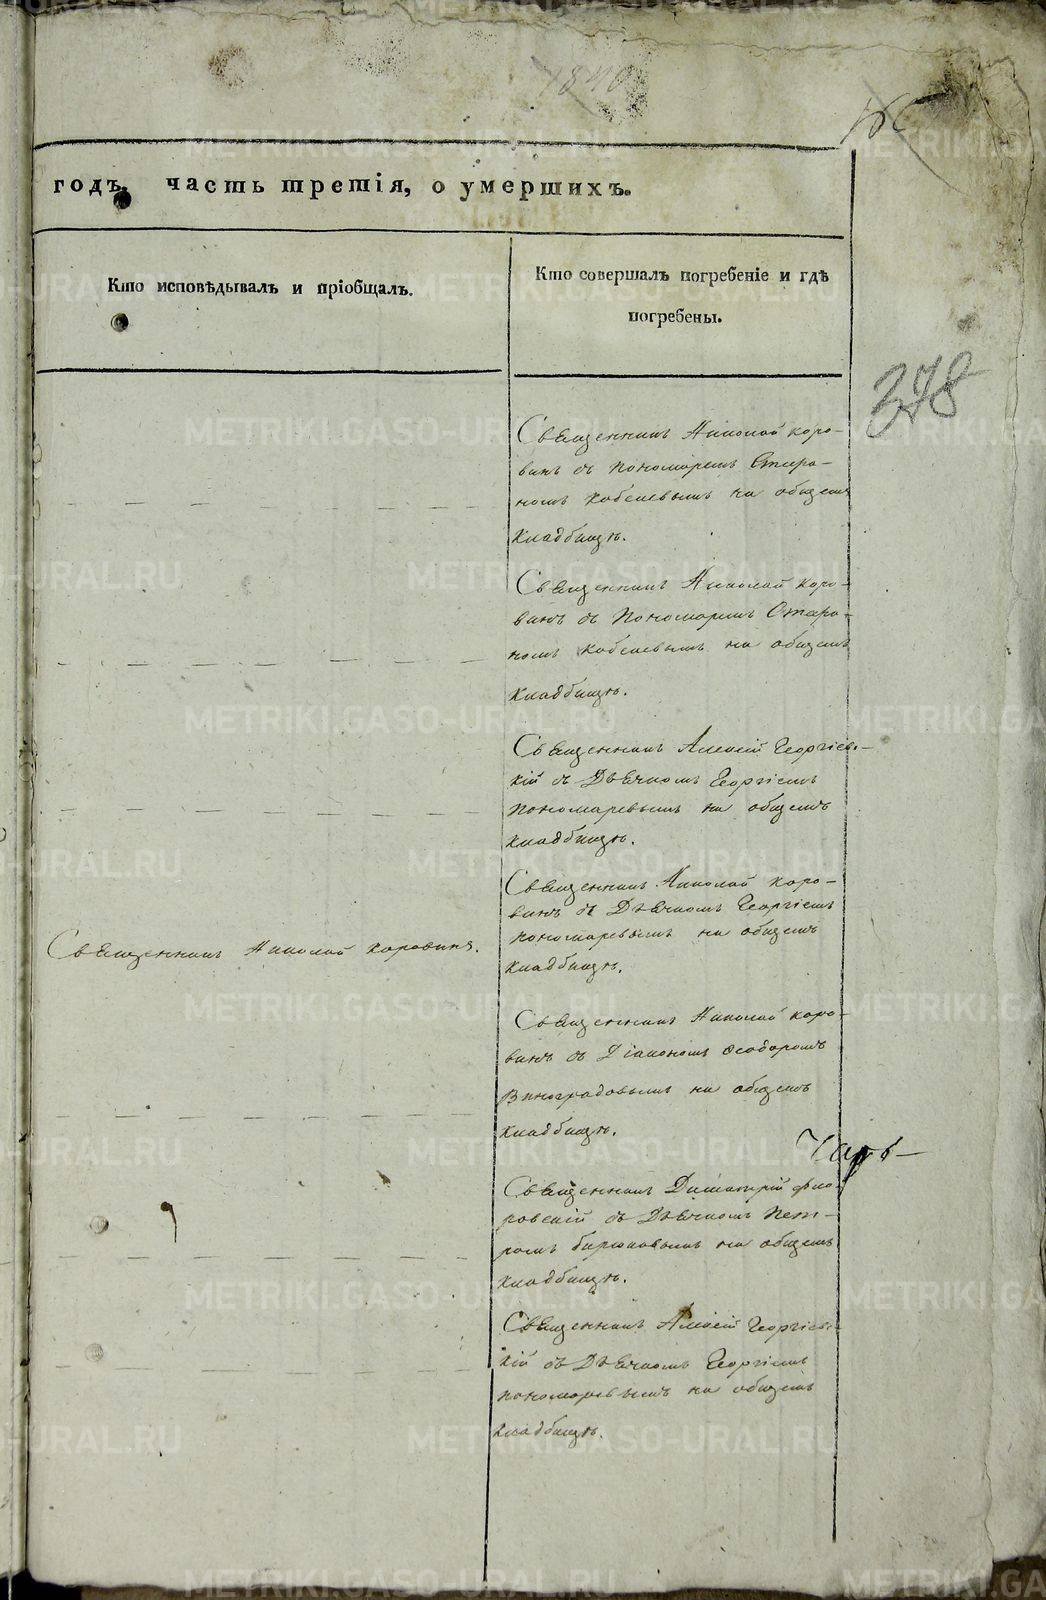 1840
годъ, часть третія, о умершихъ.
Кто исповѣдывалъ и пріобщалъ.
Кто совершалъ погребеніе и гдѣ
погребены.
378
Священникъ Николай Коро-
винъ съ пономаремъ
Кобелевымъ на общемъ
кладбищѣ.
Священникъ Николай Коро-
винъ съ Пономаремъ
Кобелевымъ на общемъ
кладбищѣ.
Священникъ Алексій Георгіевс-
кій съ Дьячкомъ Георгіемъ
Пономаревымъ на общемъ
кладбищѣ.
Священникъ Николай Коровинъ.
Священникъ Николай Коро-
винъ съ Дьячкомъ Георгіемъ
Пономаревымъ на общемъ
кладбищѣ.
Священникъ Николай Коро-
винъ съ Діакономъ Ѳеодоромъ
Виноградовымъ на общемъ
кладбищѣ.
Священникъ Димитрій Фло-
ровскій съ Дьячкомъ Пет-
ромъ Бирюковымъ на общемъ
кладбищѣ.
Священникъ Алексій Георгіевс-
кій съ Дьячкомъ Георгіемъ
Пономаревымъ на общемъ
кладбищѣ.
METRIKI.GASO-URAL.RU